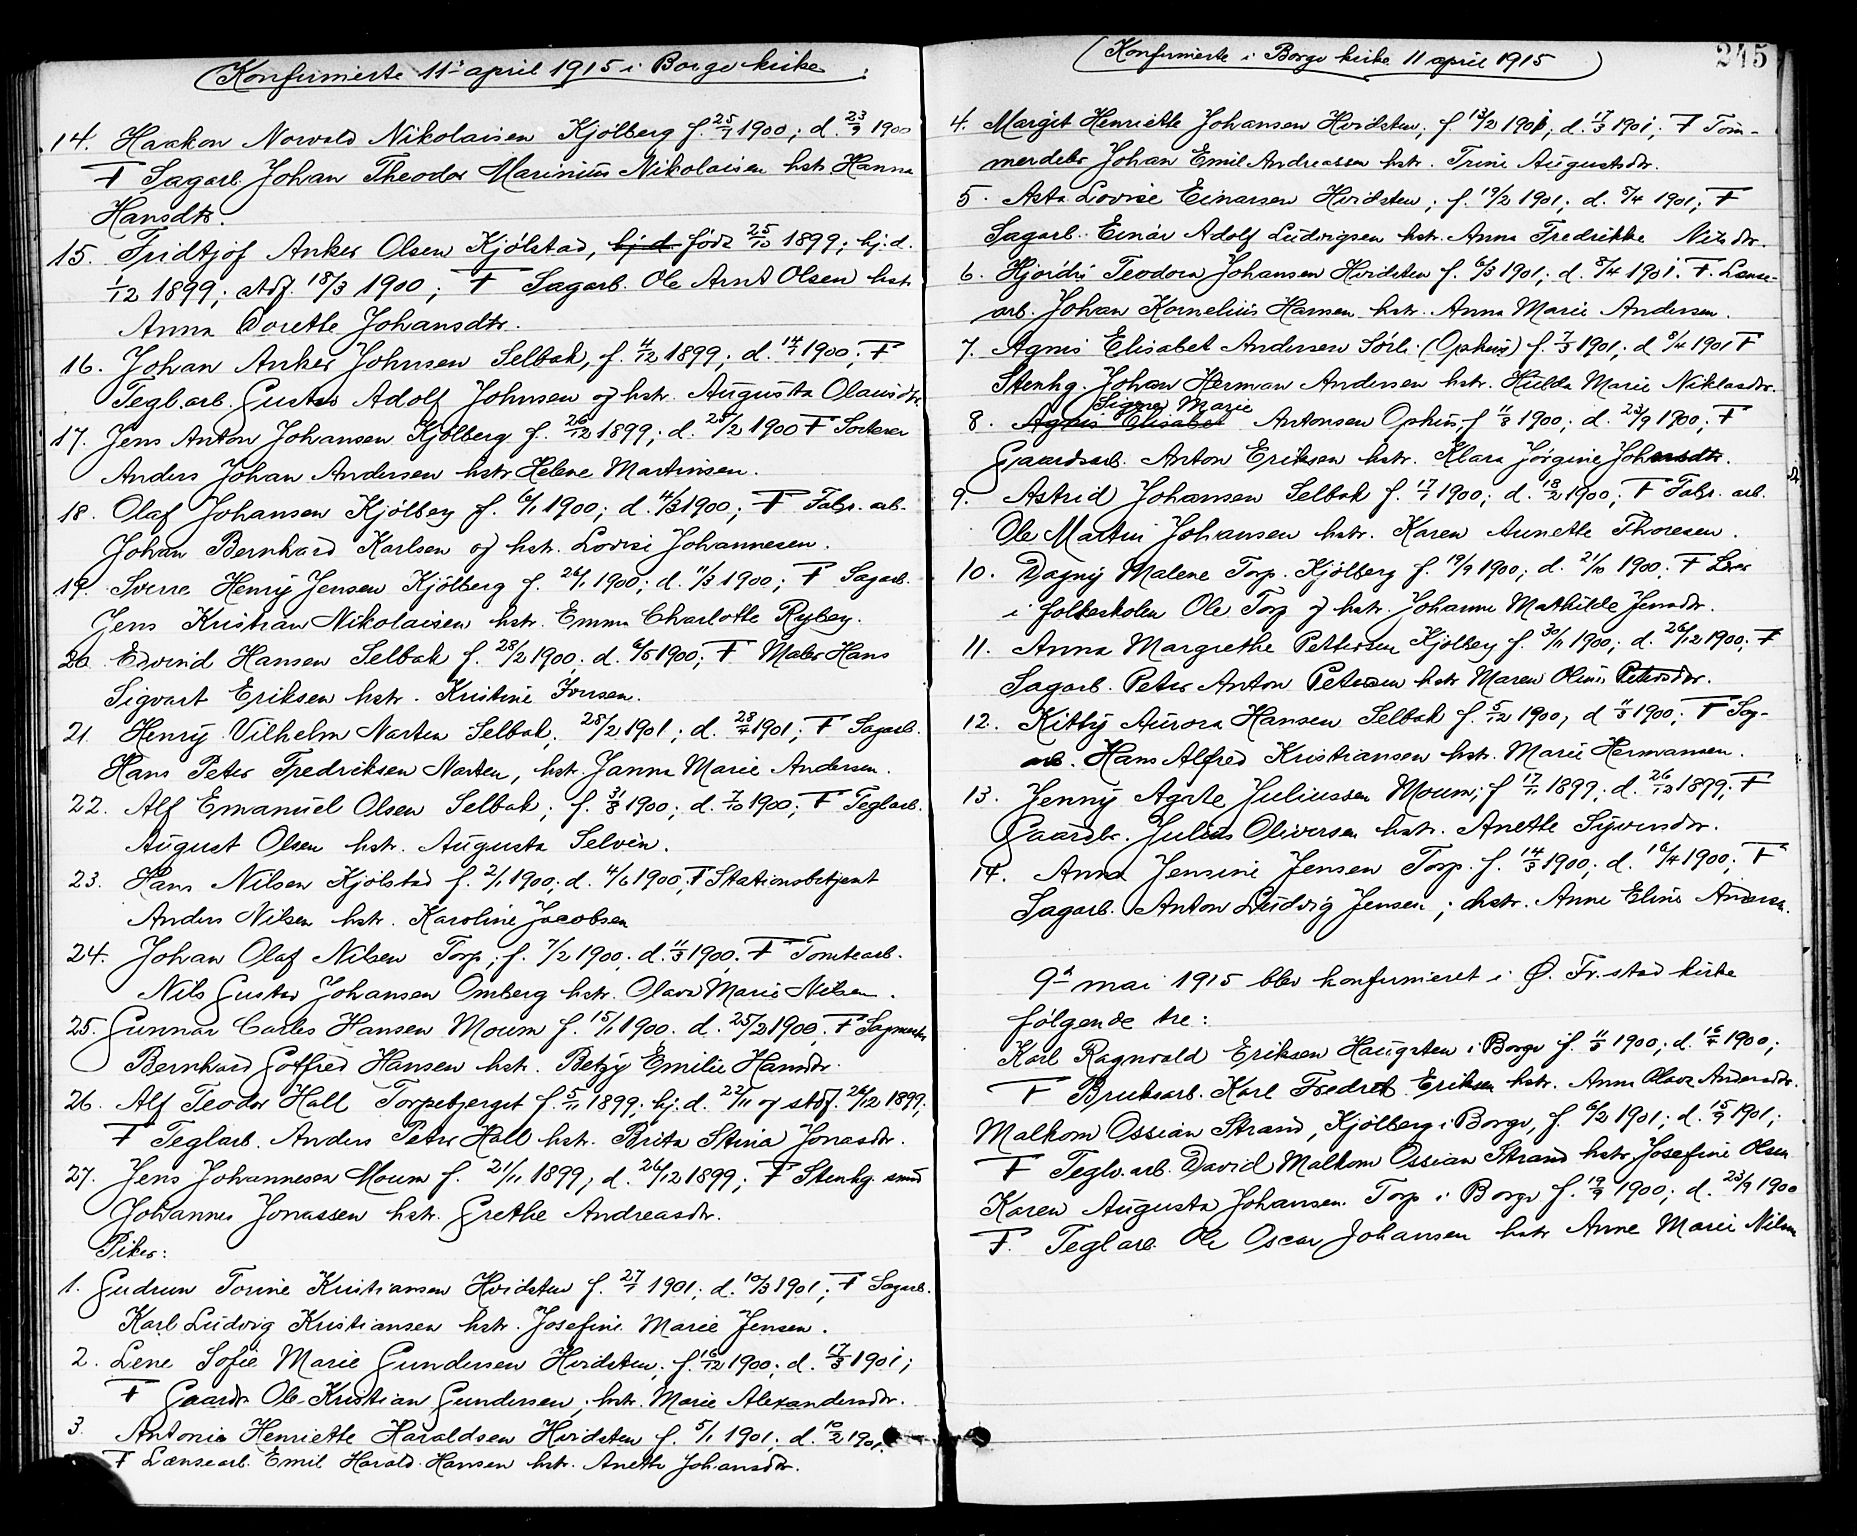 Konfirmerte 11te april 1915 i Borge kirke
14. Haakon Norvald Nikolaisen Kjölberg f. 25/7 1900; d. 23/9 1900
F Sagarb. Johan Theodor Marinius Nikolaisen hstr. Hanna
Hansdtr.
15. Fridtjof Anker Olsen Kjölstad, hj. d. födt 25/10 1899; hj. d.
1/12 1899; stdf. 18/3 1900; F Sagarb. Ole Arnt Olsen hstr
Anna Dorethe Johansdtr.
16. Johan Anker Johnsen Selbak, f. 4/12 1899; d. 14/1 1900; F
Teglarb. Gustav Adolf Johnsen og hstr. Augusta Olausdtr.
17. Jens Anton Johansen Kjölberg f. 26/12 1899; d. 25/2 1900 F Sorterer
Anders Johan Andersen hstr Helene Martinsen.
18. Olaf Johansen Kjölberg f. 6/1 1900; d. 4/3 1900; F Fabr. arb.
Johan Bernhard Karlsen og hstr. Lovise Johannesen.
19. Sverre Henry Jensen Kjölberg f. 26/1 1900; d. 11/3 1900; F Sagarb.
Jens Kristian Nikolaisen hstr. Emma Charlotte Ryberg.
20. Eivind Hansen Selbak f. 28/2 1900; d. 6/5 1900; F Maler Hans
Sigvart Eriksen hstr. Kristine Iversen.
21. Henry Vilhelm Narten Selbak; 25/2 1901; d. 28/4 1901; F Sagarb.
Hans Peter Fredriksen Narten, hstr. Janna Marie Andersen.
22. Alf Emanuel Olsen Selbak; f. 31/8 1900; d. 7/10 1900; F Teglarb.
August Olsen hstr. Augusta Selvin.
23. Hans Nilsen Kjölstad f. 2/1 1900; d. 4/6 1900; F Stationsbetjent
Anders Nilsen hstr. Karoline Jacobsen
24. Johan Olaf Nilsen Torp; f. 7/2 1900; d. 11/3 1900. F Tomtearb.
Nils Gustav Johansen Omberg hstr. Olava Marie Nilsen.
25. Gunnar Carles Hansen Moum f. 15/1 1900. d. 25/2 1900. F Sagmester
Bernhard Gotfred Hansen hstr. Betzy Emilie Hansdtr.
26. Alf Teodor Hall Torpebjerget f. 5/11 1899; hj. d. 22/11 og stdf. 26/12 1899;
F Teglarb. Anders Peter Hall hstr. Brita Stina Jonasdtr.
27. Jens Johannesen Moum f. 21/11 1899, d. 26/12 1899; F Stenhg. smed
Johannes Jonassen hstr. Grethe Andreasdtr.
Piker:
1. Gudrun Torine Kristiansen Hvidsten f. 27/1 1901; d. 10/3 1901; F Sagarb.
Karl Ludvig Kristiansen hstr. Josefine Marie Jensen.
2. Lene Sofie Marie Gundersen Hvidsten; f. 16/12 1900; d. 17/3 1901;
F Gaardr. Ole Kristian Gundersen; hstr. Marie Alexandersdtr.
3. Antonie Henriette Haraldsen Hvidsten f. 5/1 1901; d. 10/2 1901.
F Lænsearb. Emil Harald Hansen hstr. Anette Johansdtr.
Konfirmerte i Borge kirke 11 april 1915
245
4. Margit Henriette Johansen Hvidsten; f. 13/2 1901; d. 17/3 1901; F Tom-
merdeler Johan Emil Andreassen hstr. Trine Augustsdtr.
5. Asta Lovise Einarsen Hvidsten; f. 19/2 1901; d. 8/4 1901; F
Sagarb. Einar Adolf Ludvigsen hstr. Anna Fredrikke Nilsdtr.
6. Hjørdis Teodora Johansen Hvidsten f. 6/3 1901; d. 8/4 1901. F. Lænse-
arb. Johan Kornelius Hansen hstr. Anna Marie Andersen.
7. Agnes Elisabet Andersen Sörli (Ophus) f. 7/3 1901; d 8/4 1901 F
Stenhg. Johan Herman Andersen hstr. Hulda Marie Niklasdtr.
Signe Marie
8. Agnes Elisabet Antonsen Ophus, f 11/8 1900; d. 23/9 1900; F
Gaardsarb. Anton Eriksen hstr. Klara Jörgine Johansdtr.
9. Astrid Johansen Selbak f. 17/1 1900; d. 18/2 1900; F Fabr. arb.
Ole Martin Johansen hstr. Karen Annette Thoresen.
10. Dagny Malene Torp Kjölberg f. 19/9 1900; d. 21/10 1900; F Lærer
i folkeskolen Ole Torp og hstr. Johanne Mathilde Jensdtr.
11. Anna Margrethe Pettersen Kjölberg f. 30/11 1900; d. 26/12 1900; F
Sagarb. Peter Anton Petersen hstr Maren Oline Petersdtr.
12. Kitty Aurora Hansen Selbak f. 5/12 1900, d 11/3 1900; F Sag-
arb. Hans Alfred Kristiansen hstr. Marie Hermansen.
13. Jenny Agate Juliussen Moum; f 17/11 1899; d. 26/12 1899; F
Gaardbr. Julius Oliversen hstr. Anette Syversdtr.
14. Anna Jensine Jensen Torp. f. 14/3 1900; d. 16/4 1900; F
Sagarb. Anton Ludvig Jensen; hstr. Anne Eline Andersen.
9de mai 1915 blev konfirmeret i Ø. Fr.stad kirke
følgende tre:
Karl Ragnvald Eriksen Haugsten i Borge f. 11/3 1900; d. 16/4 1900;
F Bruksarb. Karl Fredrek Eriksen hstr. Anne Olava Andersdtr.
Malkom Ossian Strand, Kjölberg i Borge, f. 6/2 1901; d. 15/9 1901;
F Teglv.arb. David Malkom Ossian Strand hstr Josefine Olsen
Karen Augusta Johansen Torp i Borge f. 19/9 1900; d. 23/9 1900
F. Teglarb. Ole Oscar Johansen hstr Anne Marie Nilsen